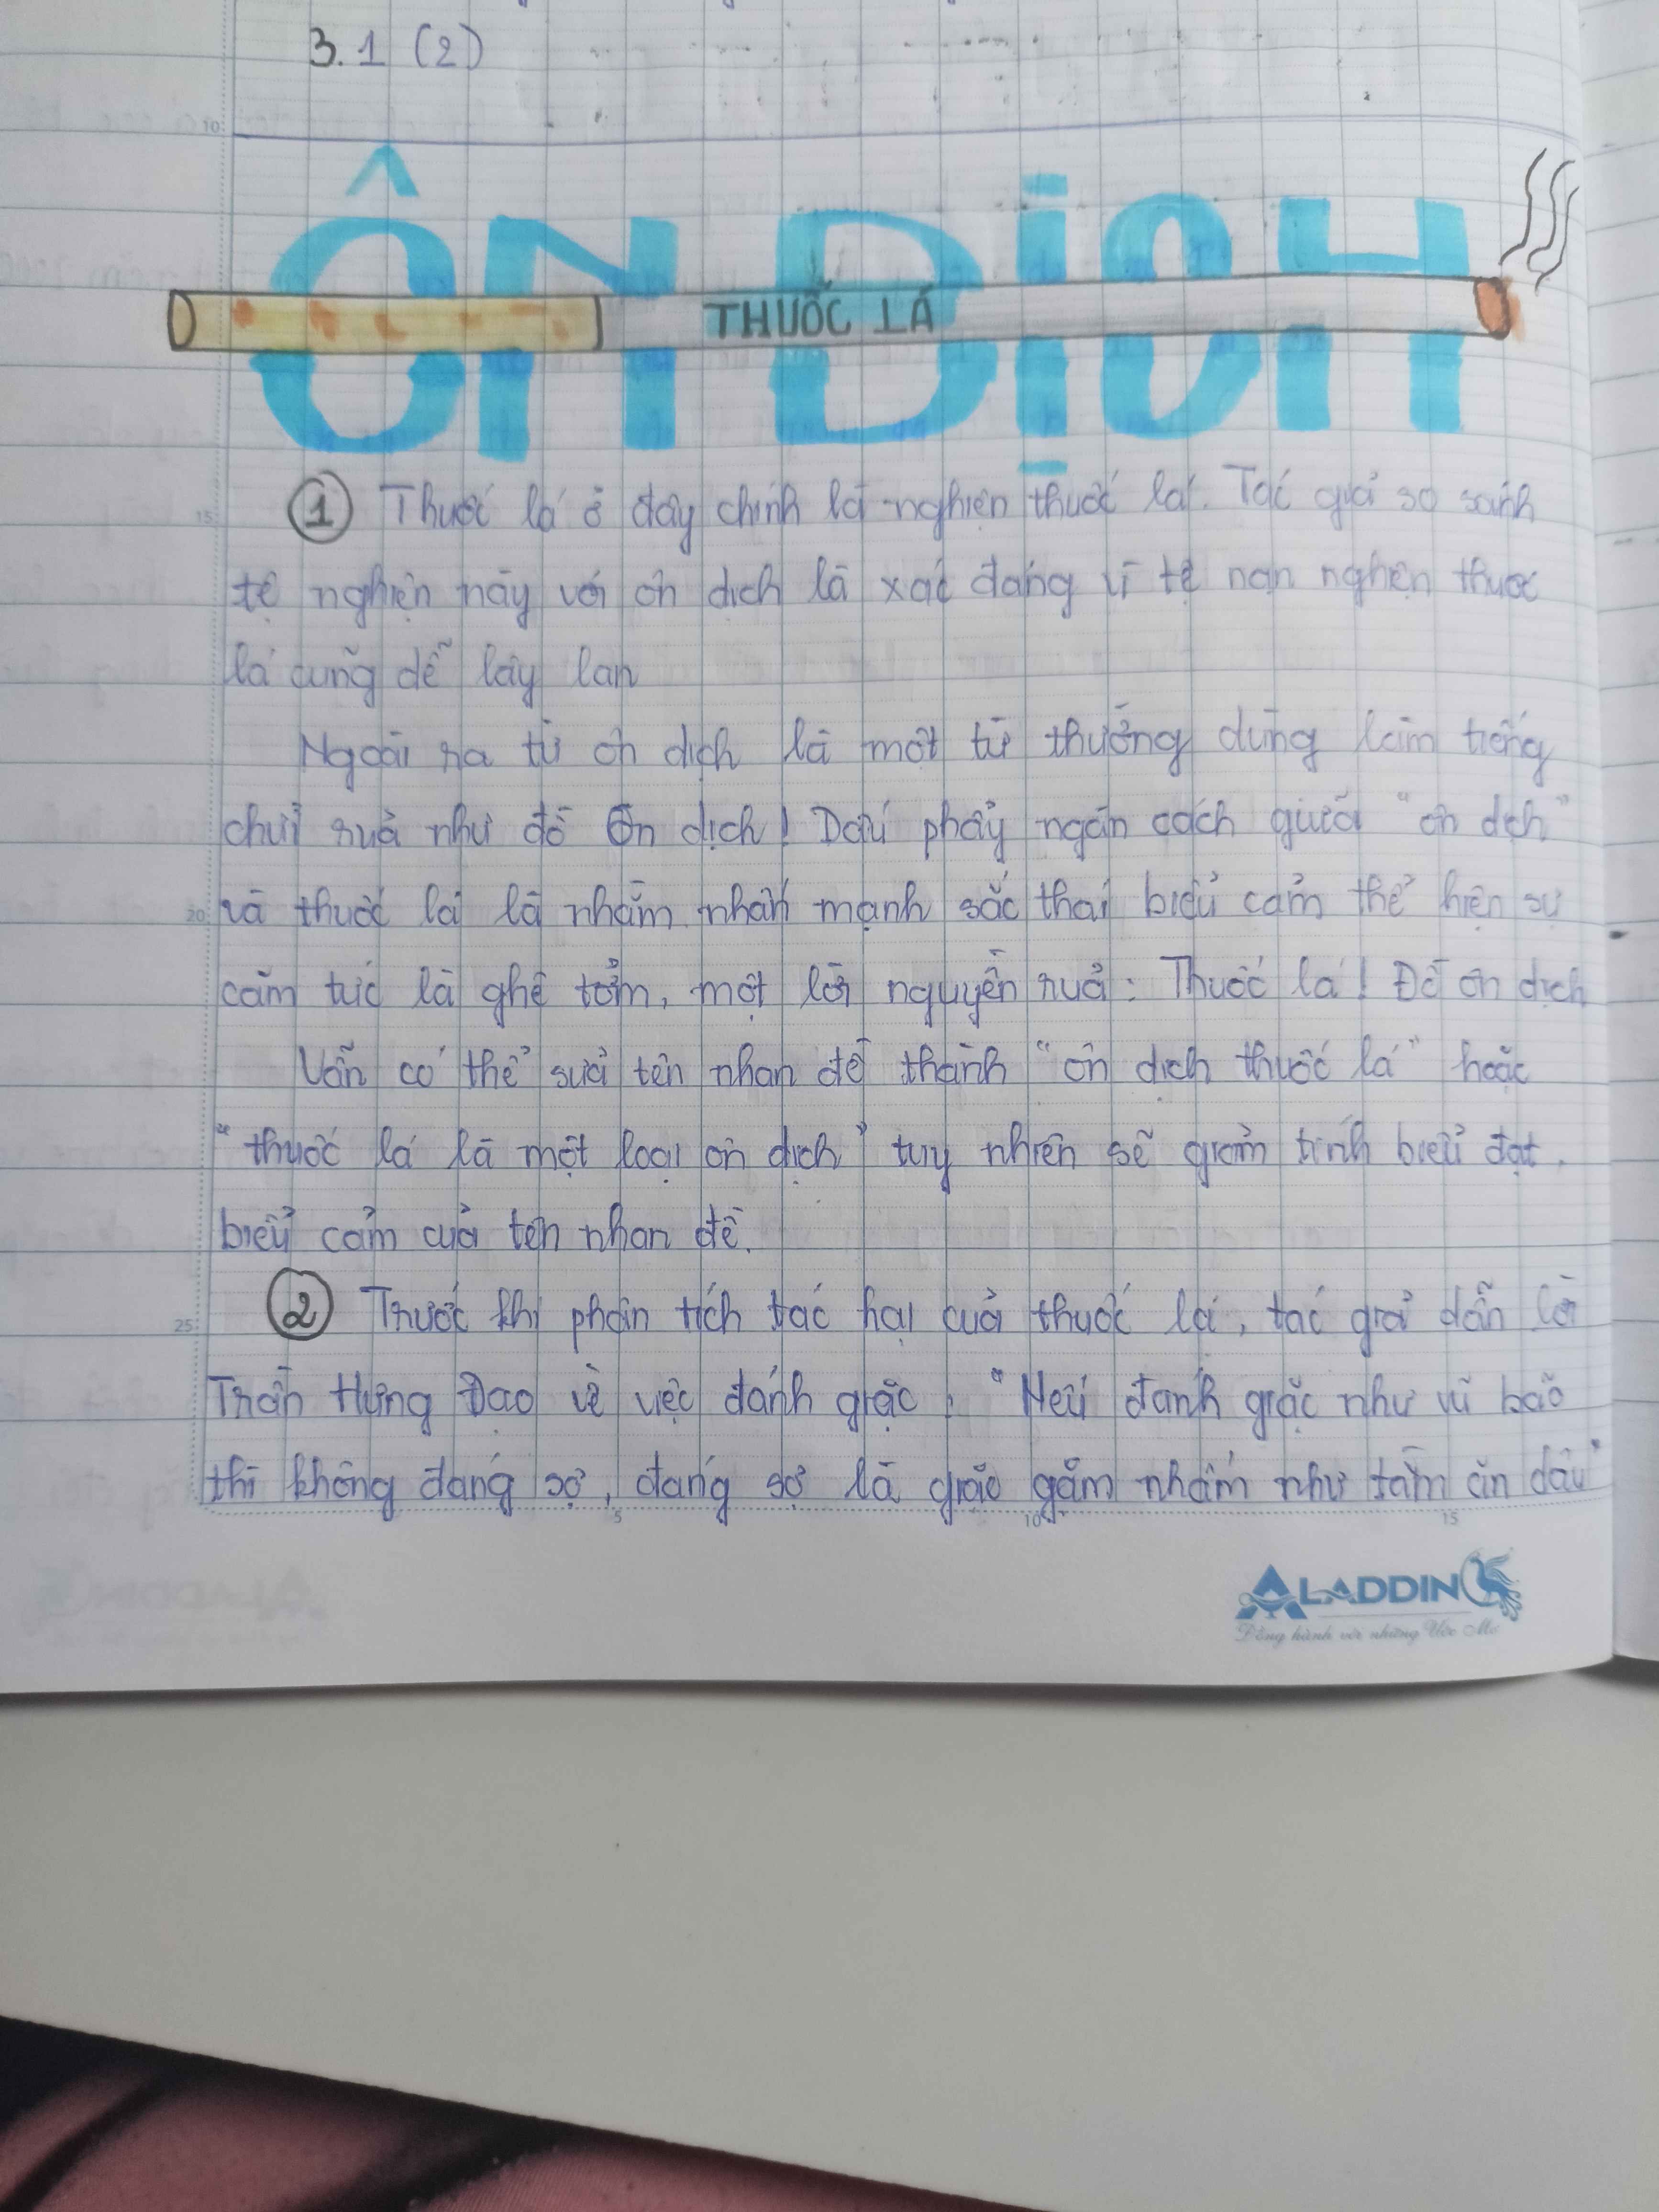 3.1 (2)
ÔN DỊCH
THUỐC LÁ
① Thuốc lá ở đây chính là nghiện thuốc lá. Tác giả so sánh
tệ nghiện này với ôn dịch là xác đáng vì tệ nạn nghiện thuốc
lá cũng dễ lây lan
Ngoài ra từ ôn dịch là một từ thường dùng làm tiếng
chửi rủa như đồ ôn dịch! Dấu phẩy ngăn cách giữa "ôn dịch"
và thuốc lá là nhằm nhấn mạnh sắc thái biểu cảm thể hiện sự
căm tức là ghê tởm, một lời nguyền rủa: Thuốc lá! Đồ ôn dịch
Vẫn có thể sửa tên nhan đề thành "ôn dịch thuốc lá" hoặc
"thuốc lá là một loại ôn dịch" tuy nhiên sẽ giảm tính biểu đạt.
biểu cảm của tên nhan đề.
② Trước khi phân tích tác hại của thuốc lá, tác giả dẫn lời
Trần Hưng Đạo về việc đánh giặc: "Nếu đánh giặc như vũ bão
thì không đáng sợ, đáng sợ là giặc gặm nhấm như tằm ăn dâu"
ALADDIN
Đồng hành với những Ước Mơ
10
15
20
25
5
10
15